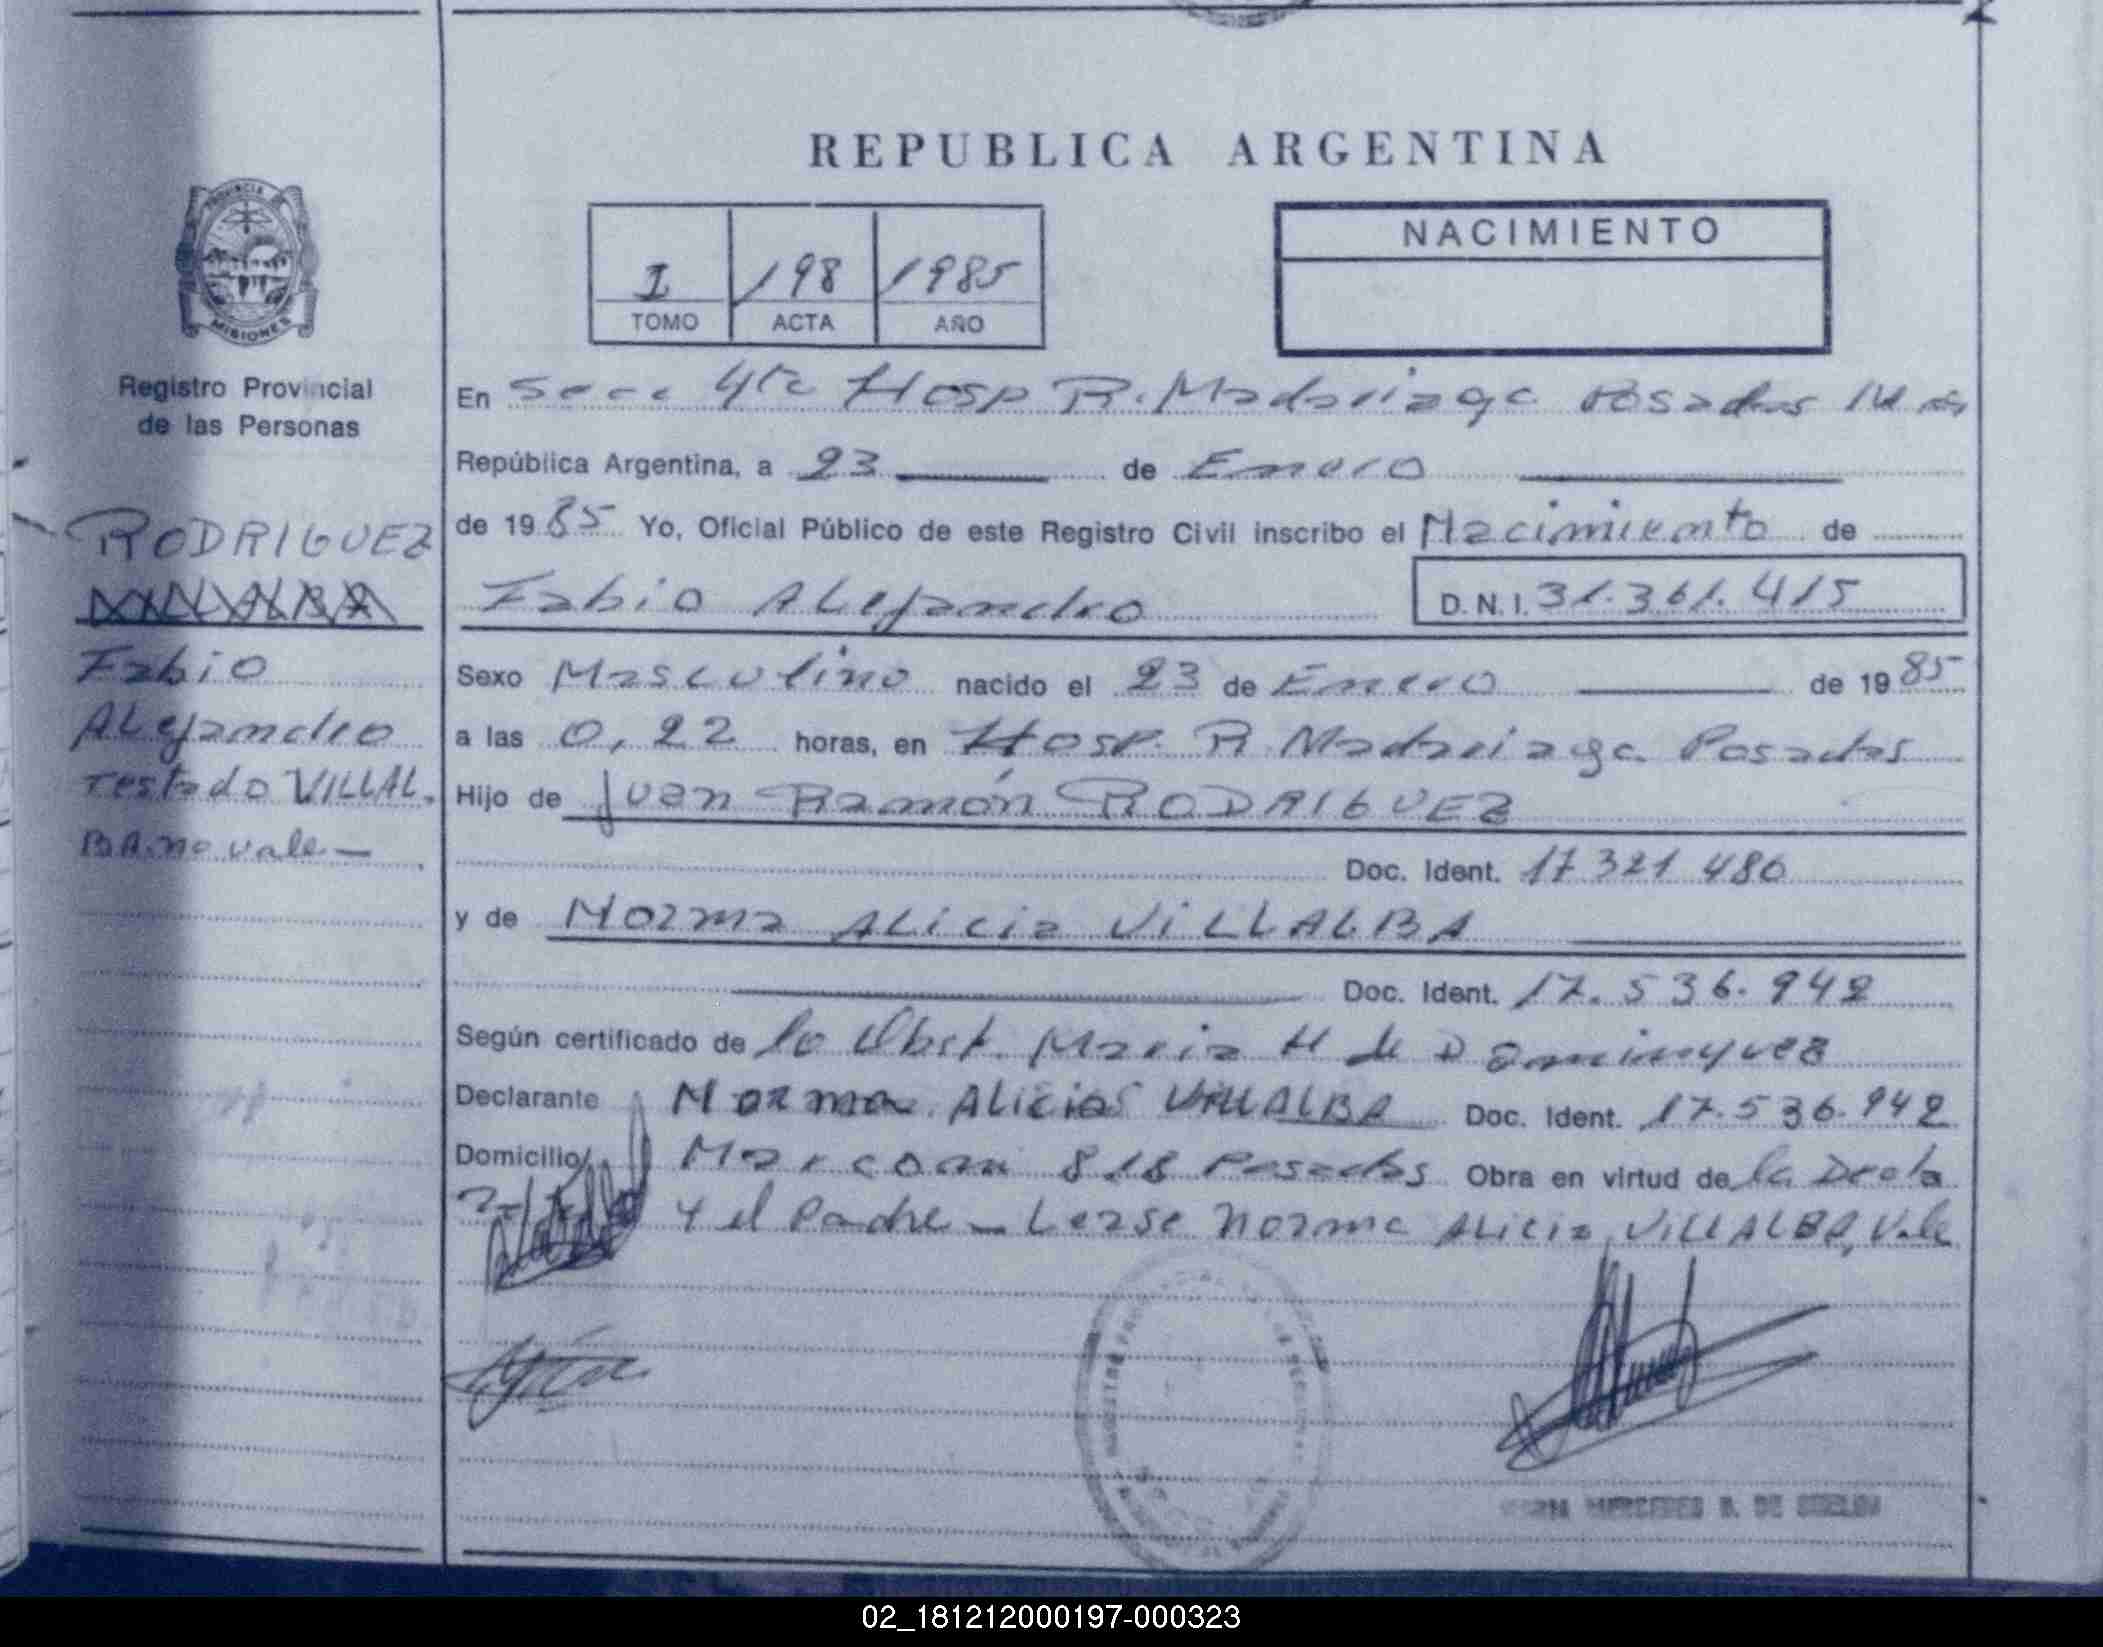 REPUBLICA ARGENTINA
PROVINCIA
MISIONES
Registro Provincial
de las Personas
I 198 1985
TOMO ACTA AÑO
NACIMIENTO
RODRIGUEZ
VILLALBA
Fabio
Alejandro
Testado VILLAL
BA. no vale —
En Secc 4ta Hosp R. Madariaga Posadas
República Argentina, a 23 de Enero
de 1985 Yo, Oficial Público de este Registro Civil inscribo el Nacimiento de
Fabio Alejandro D.N.I. 31.361.415
Sexo Masculino nacido el 23 de Enero de 1985
a las 0,22 horas, en Hosp. R Madariaga Posadas
Hijo de Juan Ramón RODRIGUEZ
Doc. Ident. 17 321 480
y de Norma Alicia VILLALBA
Doc. Ident. 17.536.942
Según certificado de la Obst. Maria H de Dominguez
Declarante Norma Alicia VILLALBA Doc. Ident. 17.536.942
Domicilio Marconi 818 Posadas Obra en virtud de la Decla
y el Padre — Lease Norma Alicia VILLALBA, Vale
02_181212000197-000323